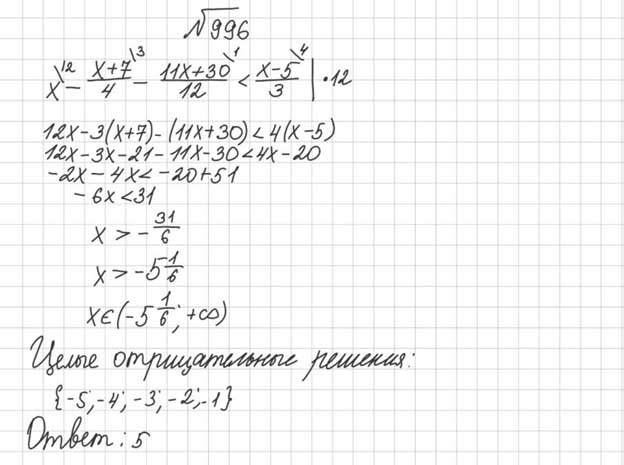 №996
x\¹² - (x+7)/4\³ - (11x+30)/12\¹ < (x-5)/3\⁴ | •12
12x-3(x+7)-(11x+30)<4(x-5)
12x-3x-21-11x-30<4x-20
-2x-4x<-20+51
-6x<31
x > -31/6
x > -5 1/6
x∈(-5 1/6; +∞)
Целые отрицательные решения:
{-5;-4;-3;-2;-1}
Ответ: 5